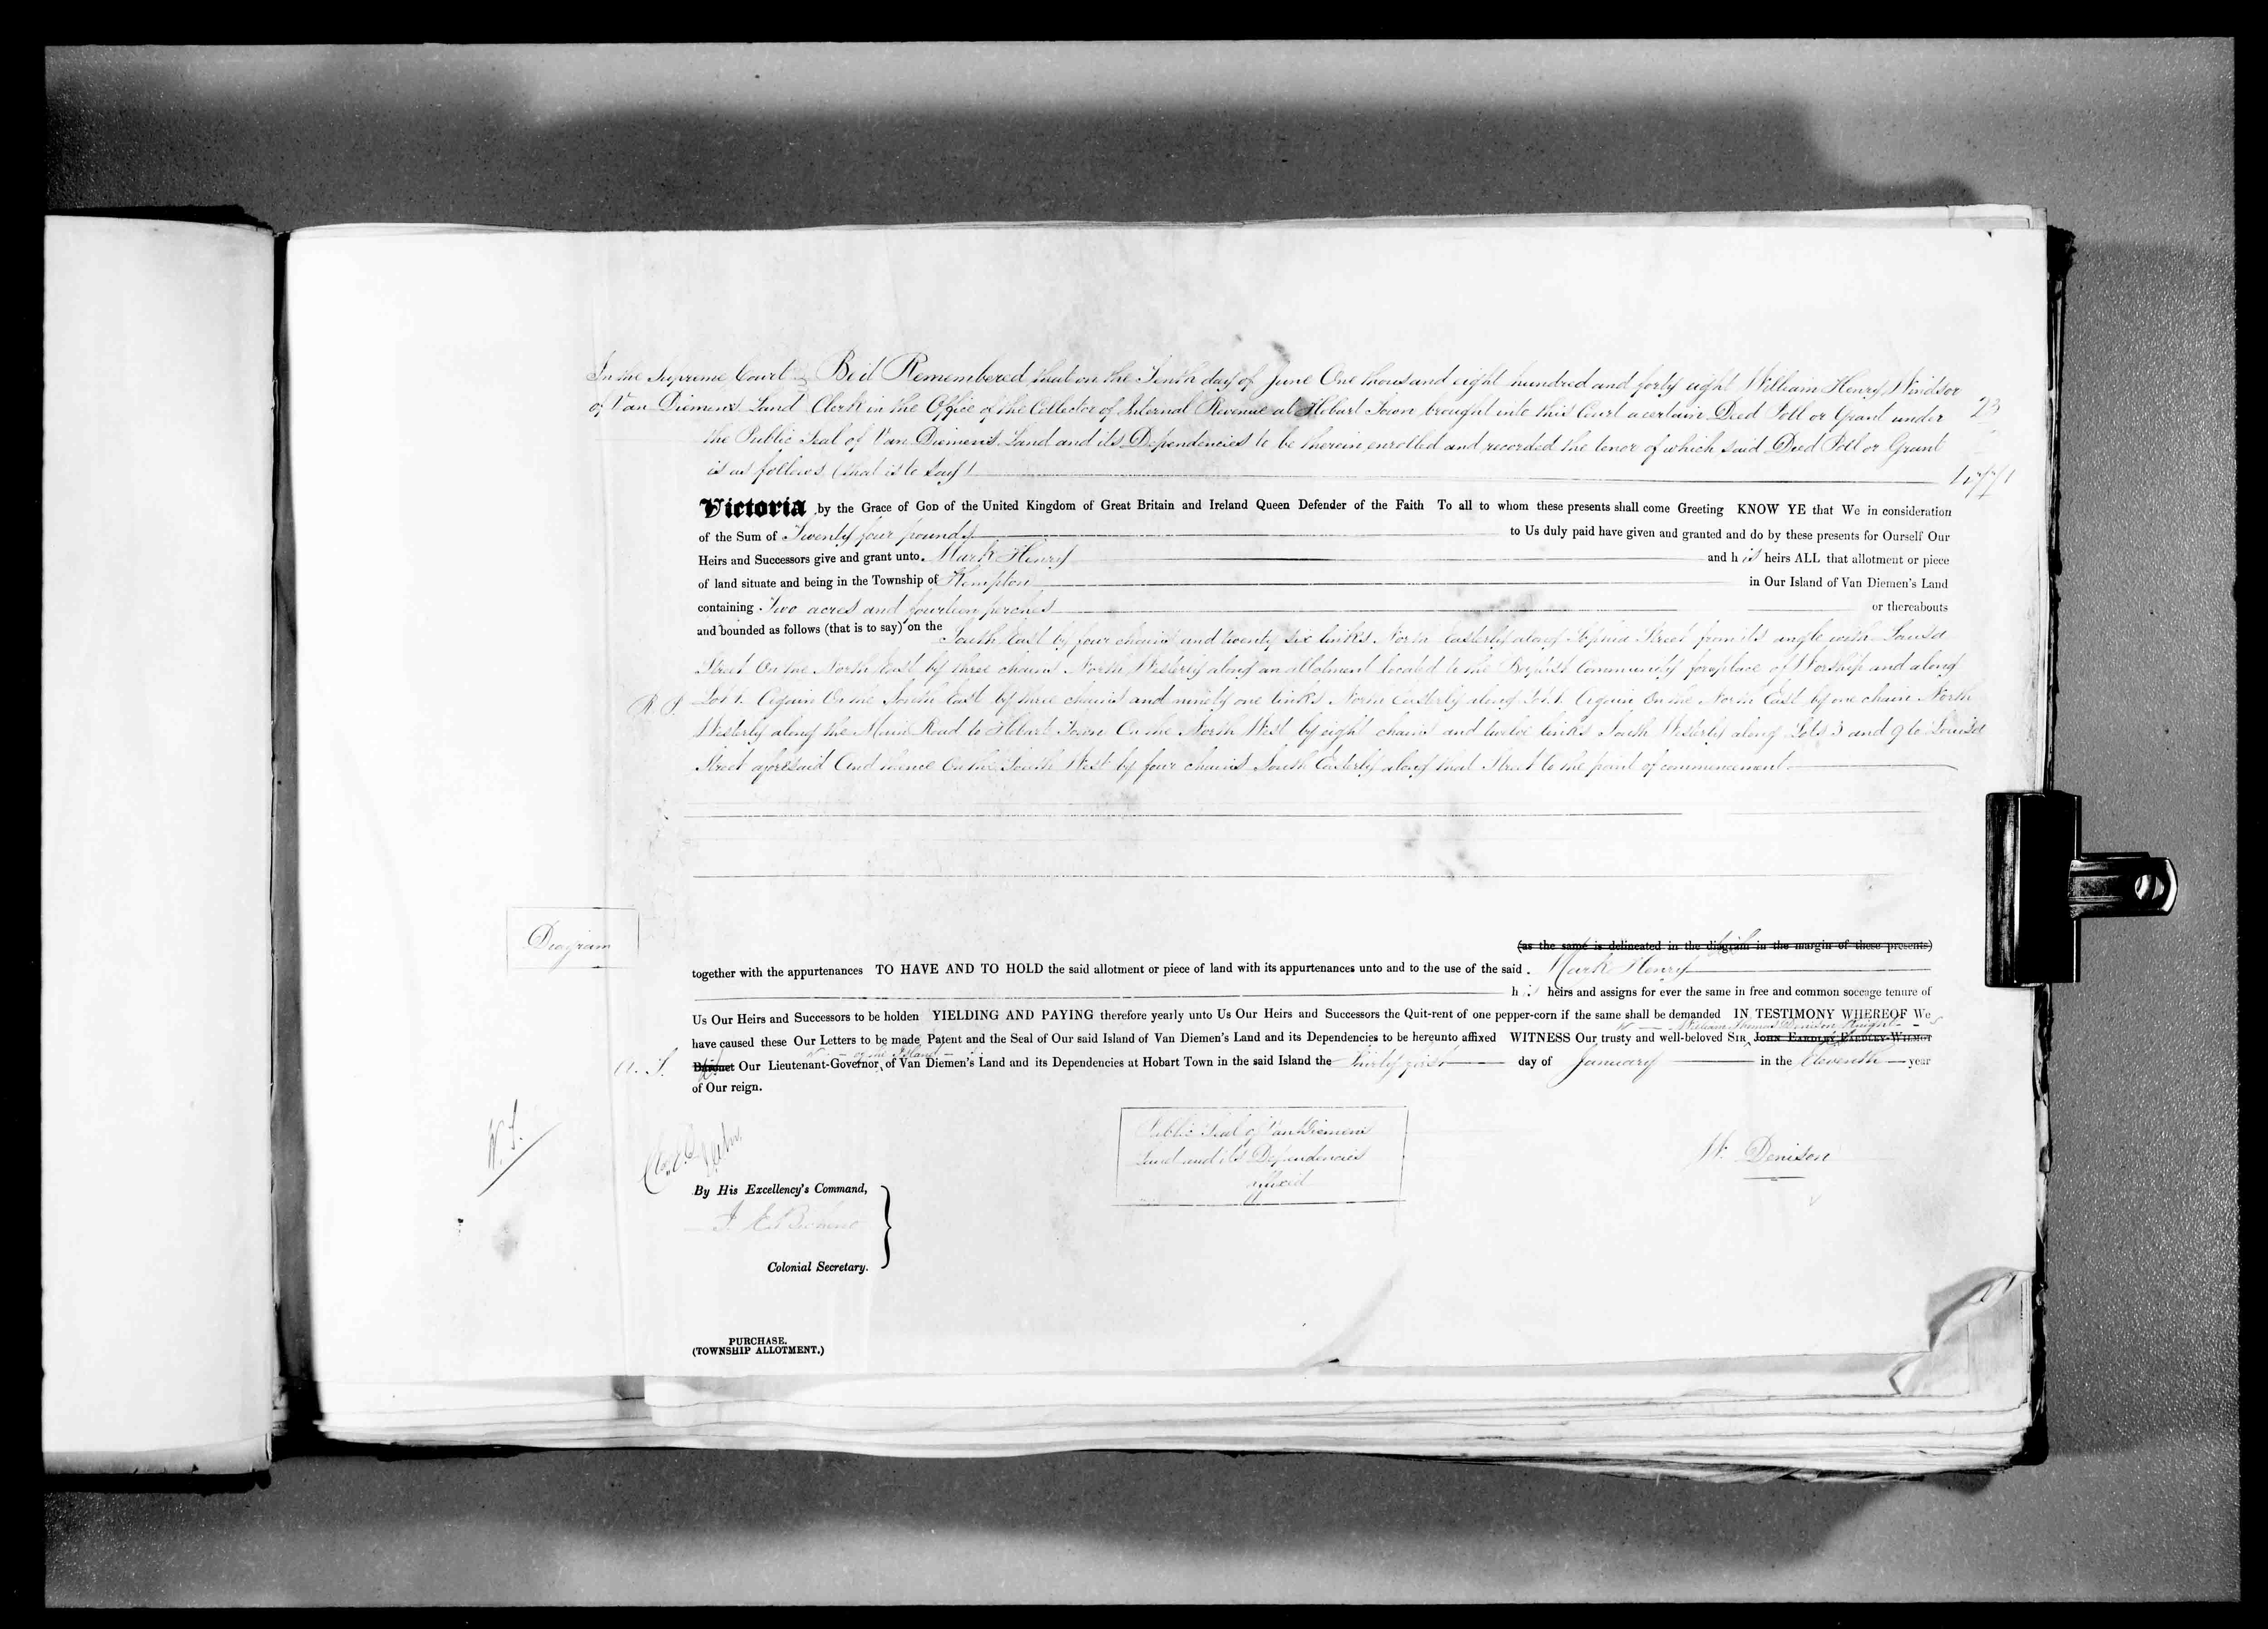 In the Supreme Court Be it Remembered that on the Tenth day of June One thousand eight hundred and forty eight William Henry Windsor
of Van Diemens Land Clerk in the Office of the Collector of Internal Revenue at Hobart Town brought into this Court a certain Deed Poll or Grant under
23
the Public Seal of Van Diemen's Land and its Dependencies to be therein enrolled and recorded the tenor of which said Deed Poll or Grant
is as follows (that is to say)
Victoria by the Grace of God of the United Kingdom of Great Britain and Ireland Queen Defender of the Faith To all to whom these presents shall come Greeting KNOW YE that We in consideration
of the Sum of Twenty four pounds to Us duly paid have given and granted and do by these presents for Ourself Our
Heirs and Successors give and grant unto Mark Henry and his heirs ALL that allotment or piece
of land situate and being in the Township of Kempton in Our Island of Van Diemen's Land
containing Two acres and fourteen perches or thereabouts
and bounded as follows (that is to say) on the South East by four chains and twenty six links North Easterly along Sophia Street from its angle with Louisa
Street On the North East by three chains North Westerly along an allotment located to the Baptist Community for a place of Worship and along
R. P. Lot 1. Again On the South East by three chains and ninety one links North Easterly along Lot 1. Again On the North East by one chain North
Westerly along the Main Road to Hobart Town On the North West by eight chains and twelve links South Westerly along Lots 3 and 9 to Louisa
Street aforesaid And thence On the South West by four chains South Easterly along that Street to the point of commencement
Diagram
(as the same is delineated in the diagram in the margin of these presents)
together with the appurtenances TO HAVE AND TO HOLD the said allotment or piece of land with its appurtenances unto and to the use of the said Mark Henry
his heirs and assigns for ever the same in free and common soccage tenure of
Us Our Heirs and Successors to be holden YIELDING AND PAYING therefore yearly unto Us Our Heirs and Successors the Quit-rent of one pepper-corn if the same shall be demanded IN TESTIMONY WHEREOF We
William Thomas Denison Knight
have caused these Our Letters to be made Patent and the Seal of Our said Island of Van Diemen's Land and its Dependencies to be hereunto affixed WITNESS Our trusty and well-beloved SIR JOHN EARDLEY EARDLEY-WILMOT
of the Island
Baronet Our Lieutenant-Governor, of Van Diemen's Land and its Dependencies at Hobart Town in the said Island the Thirty first day of January in the Eleventh year
of Our reign.
Public Seal of Van Diemens
Land and its Dependencies
affixed
W. Denison
By His Excellency's Command,
J. E. Bicheno
Colonial Secretary.
PURCHASE.
(TOWNSHIP ALLOTMENT.)